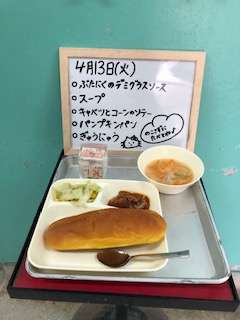 4月13日(火)
○ぶたにくのデミグラスソース
○スープ
○キャベツとコーンのソテー
○パンプキンパン
○ぎゅうにゅう
のこさずに
たべてね♪